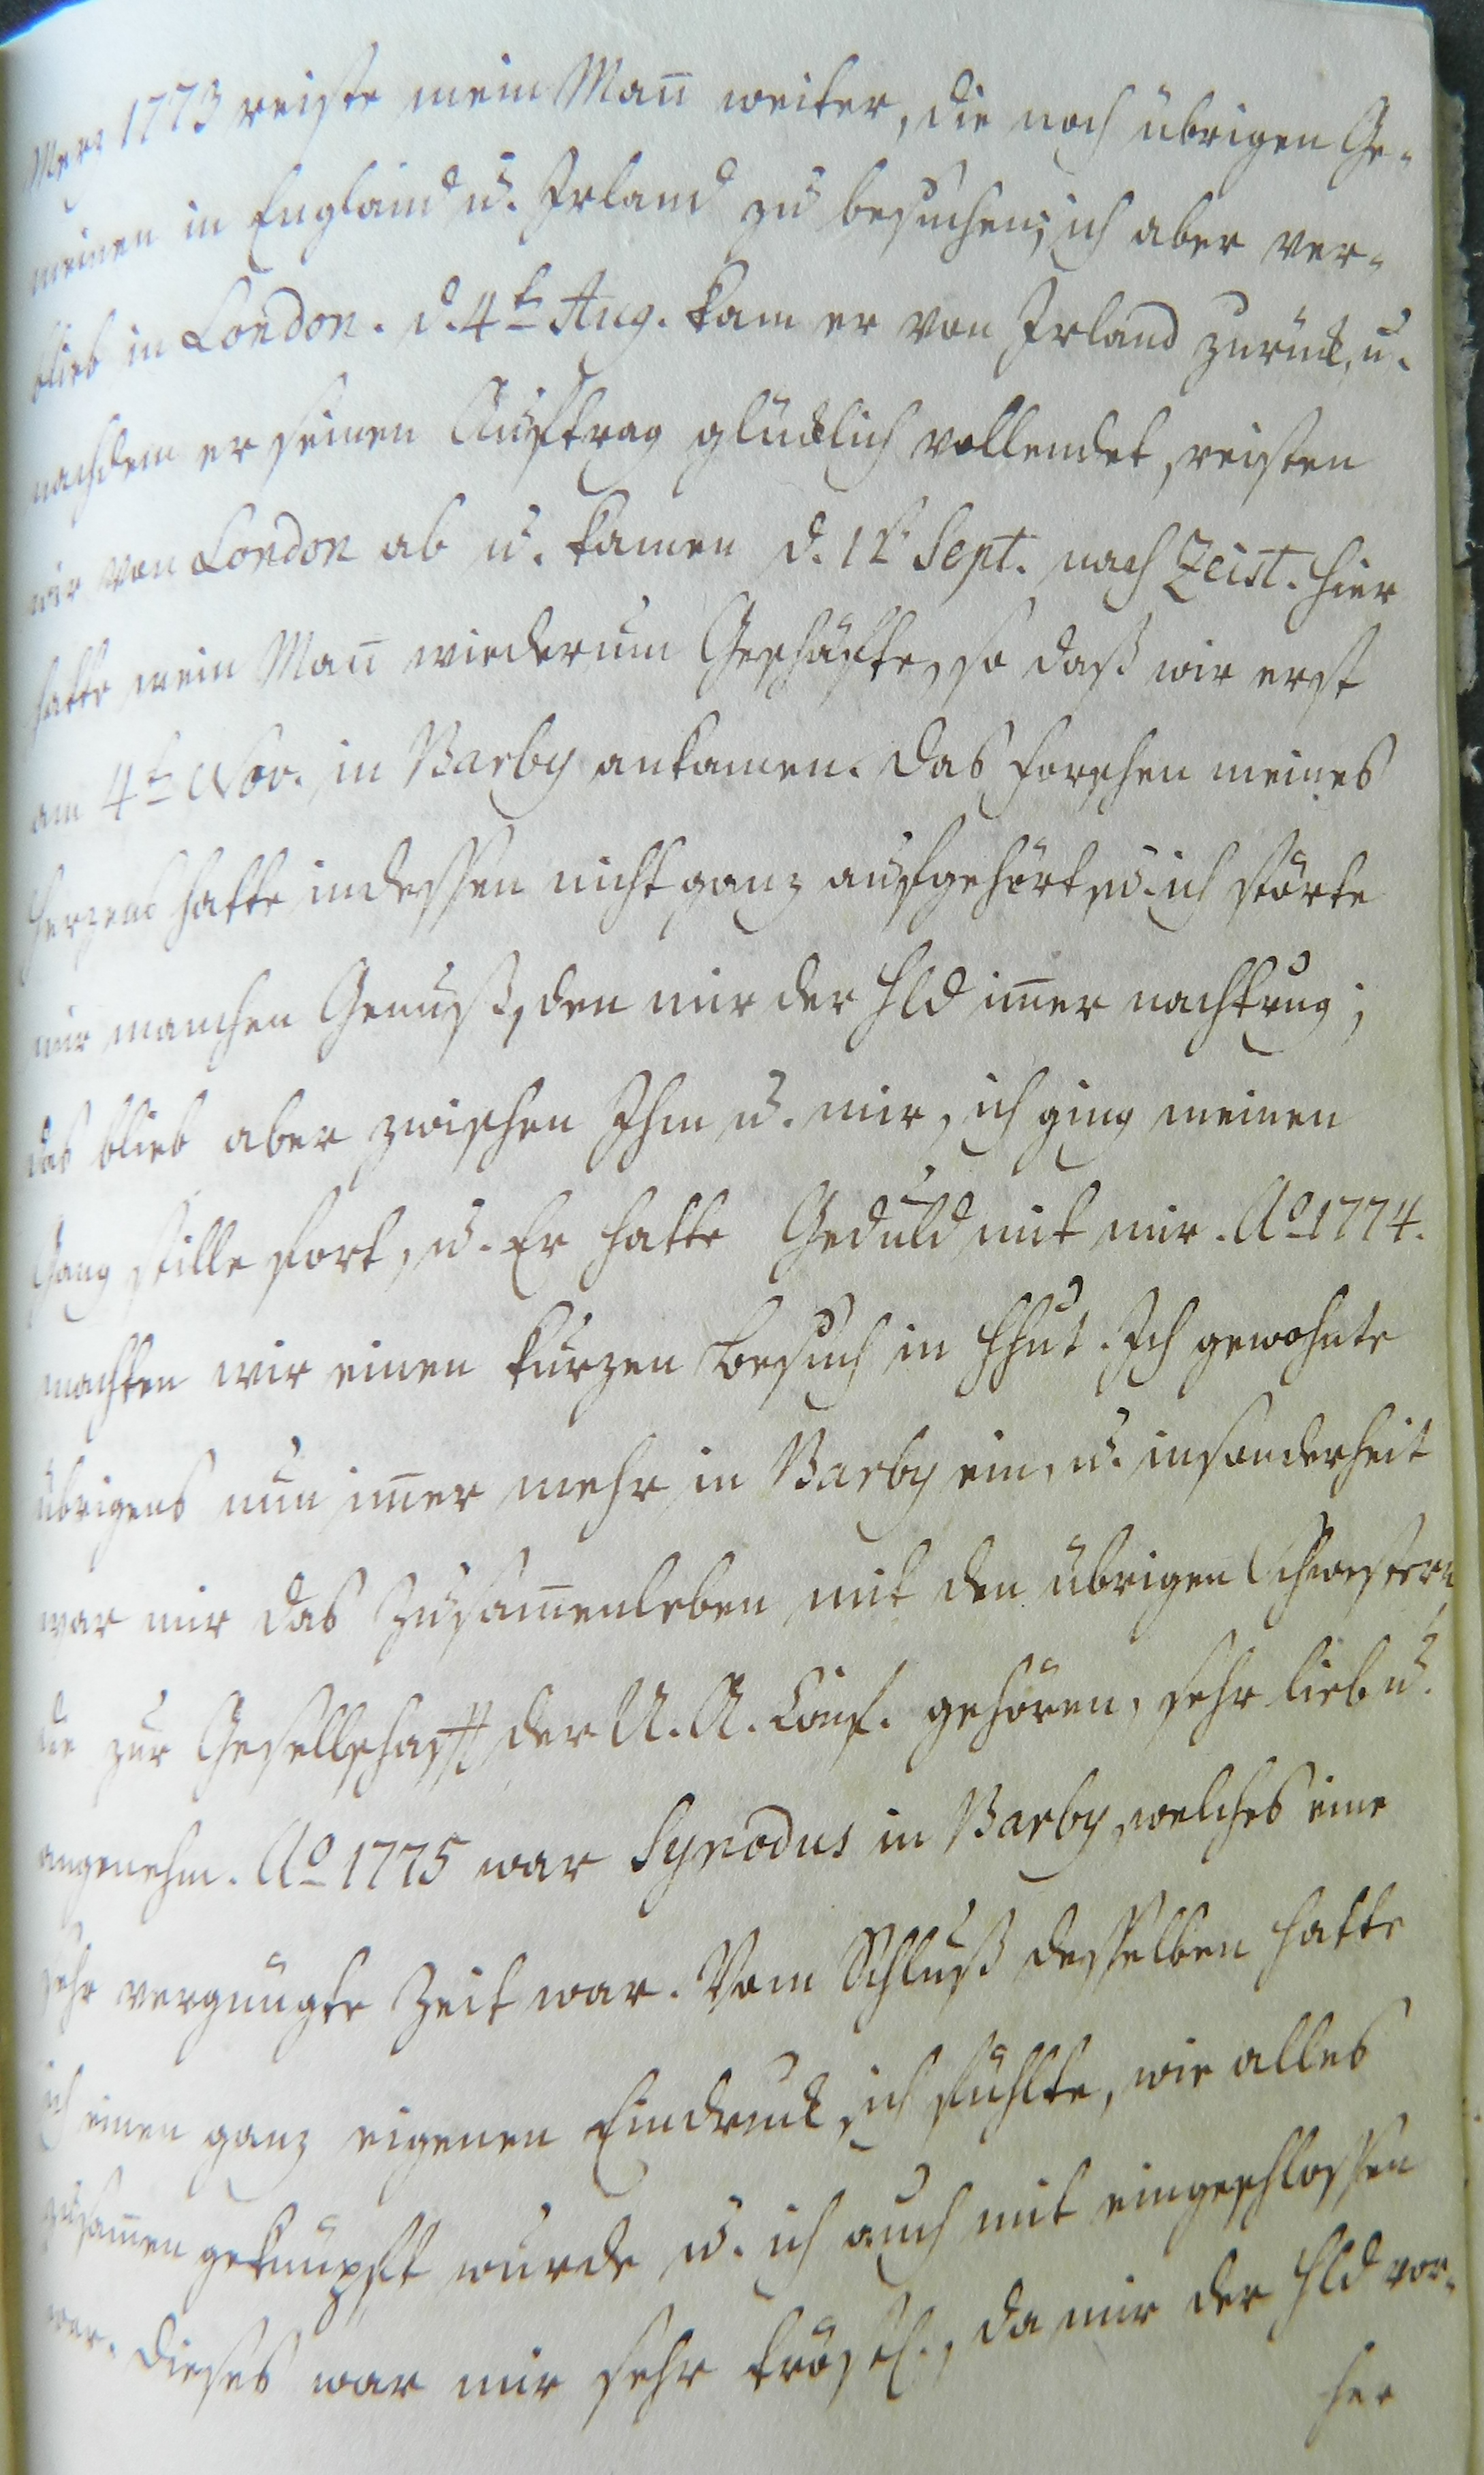 Merz 1773 reiste mein Man̄ weiter, die noch übrigen Ge-
meinen in England u. Irland zu besuchen; ich aber ver-
blieb in London. d. 4t Aug. kam er von Irland zurück, u.
nachdem er seinen Auftrag glücklich vollendet, reisten
wir von London ab u. kamen d. 1t Sept. nach Zeist. Hier
hatte mein Man̄ wiederum Geschäfte, so daß wir erst
am 4t Nov. in Barby ankamen. Das Forschen meines
Herzens hatte indessen nicht ganz aufgehört, u. ich störte
mir manchen Genuß, den mir der Hld im̄er nachtrug;
das blieb aber zwischen Ihm u. mir, ich ging meinen
Gang stille fort, u. Er hatte Geduld mit mir. Ao 1774.
machten wir einen kurzen Besuch in Hhut. Ich gewohnte
übrigens nun im̄er mehr in Barby ein, u. insonderheit
war mir das Zusam̄enleben mit den übrigen Schwestern,
die zur Gesellschafft der U. A. Conf. gehören, sehr lieb u.
angenehm. Ao 1775 war Synodus in Barby, welches eine
sehr vergnügte Zeit war. Vom Schluß desselben hatte
ich einen ganz eigenen Eindruck, ich fühlte, wie alles
zusam̄en geknüpft wurde u. ich auch mit eingeschlossen
war. Dieses war mir sehr tröstl., da mir der Hld vor-
her